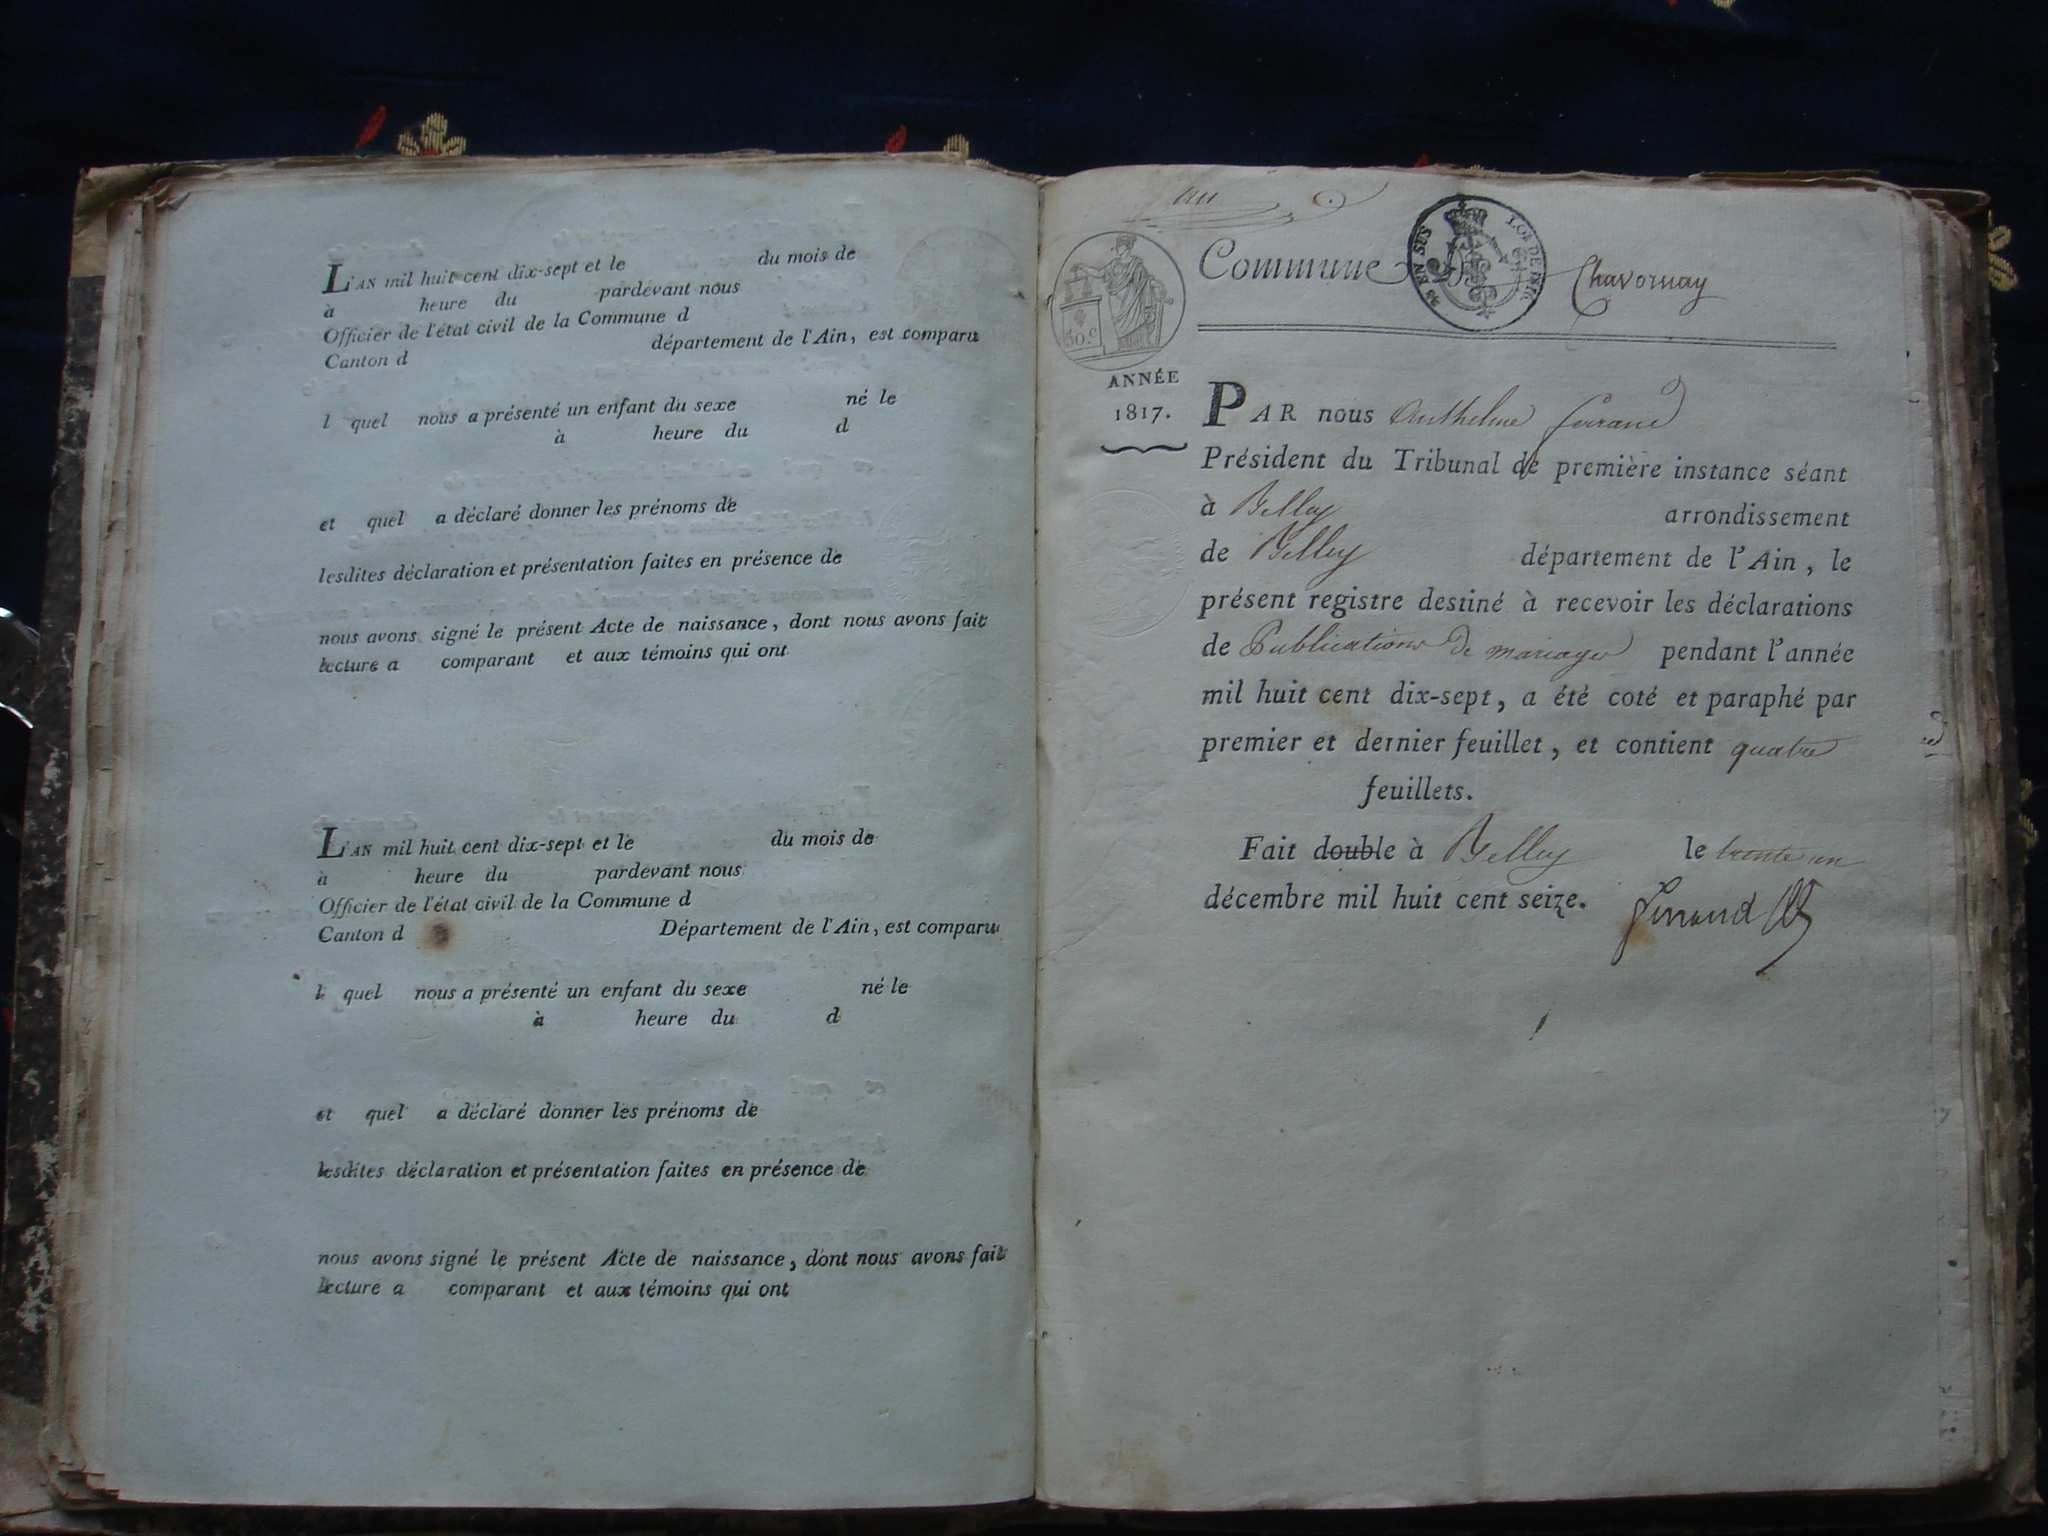 L'AN mil huit cent dix-sept et le du mois de
à heure du pardevant nous
Officier de l'état civil de la Commune d
Canton d département de l'Ain, est comparu
l quel nous a présenté un enfant du sexe né le
à heure du d
et quel a déclaré donner les prénoms de
lesdites déclaration et présentation faites en présence de
nous avons signé le présent Acte de naissance, dont nous avons fait
lecture a comparant et aux témoins qui ont
L'AN mil huit cent dix-sept et le du mois de
à heure du pardevant nous
Officier de l'état civil de la Commune d
Canton d Département de l'Ain, est comparu
l quel nous a présenté un enfant du sexe né le
à heure du d
et quel a déclaré donner les prénoms de
lesdites déclaration et présentation faites en présence de
nous avons signé le présent Acte de naissance, dont nous avons fait
lecture a comparant et aux témoins qui ont
Commune de Chavornay
LOI DE 1816
50 C
ANNÉE
1817.
PAR nous Anthelme
Président du Tribunal de première instance séant
à Belley arrondissement
de Belley département de l'Ain, le
présent registre destiné à recevoir les déclarations
de Publications de mariages pendant l'année
mil huit cent dix-sept, a été coté et paraphé par
premier et dernier feuillet, et contient quatre
feuillets.
Fait double à Belley le trente un
décembre mil huit cent seize.